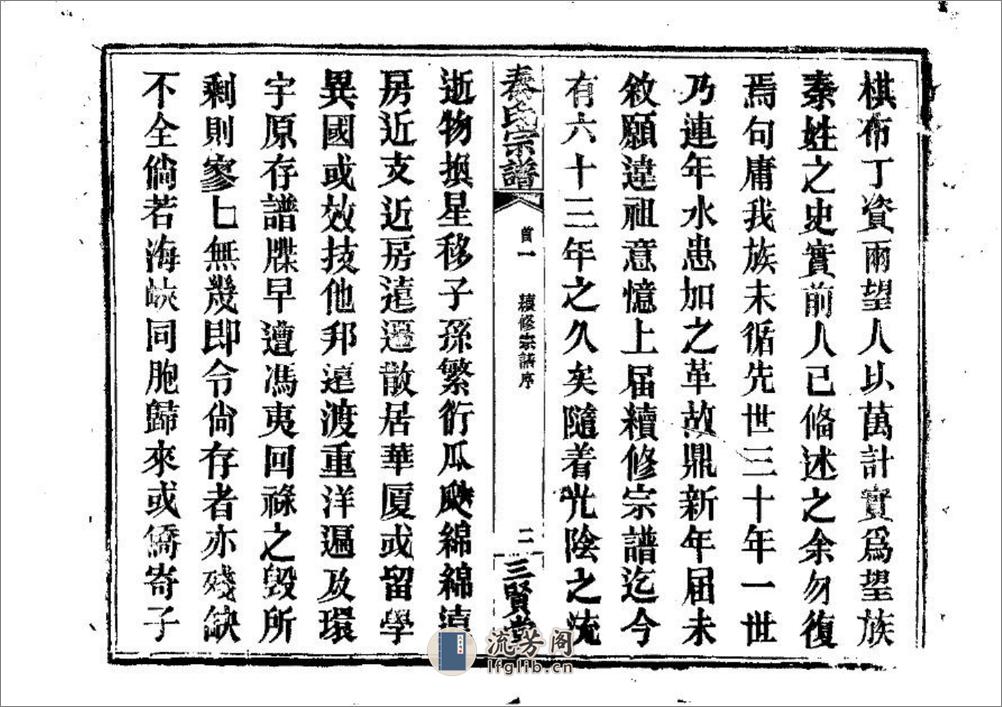 棋布丁資雨望人以萬計實爲望族
秦姓之史實前人已俻述之余勿復
焉句庸我族未循先世三十年一世
乃連年水患加之革故鼎新年屆未
敘願違祖意憶上届續修宗譜迄今
有六十三年之久矣隨着光陰之流
秦氏宗譜
首一 續修宗譜序
二 三賢堂
逝物換星移子孫繁衍瓜瓞綿綿遠
房近支近房遠遷散居華厦或留學
異國或效技他邦遠渡重洋遍及環
宇原存譜牒早遭馮夷回祿之毀所
剩則寥匕無幾即令尙存者亦殘缺
不全倘若海峡同胞歸來或僑寄子
流芳阁
lfglib.cn